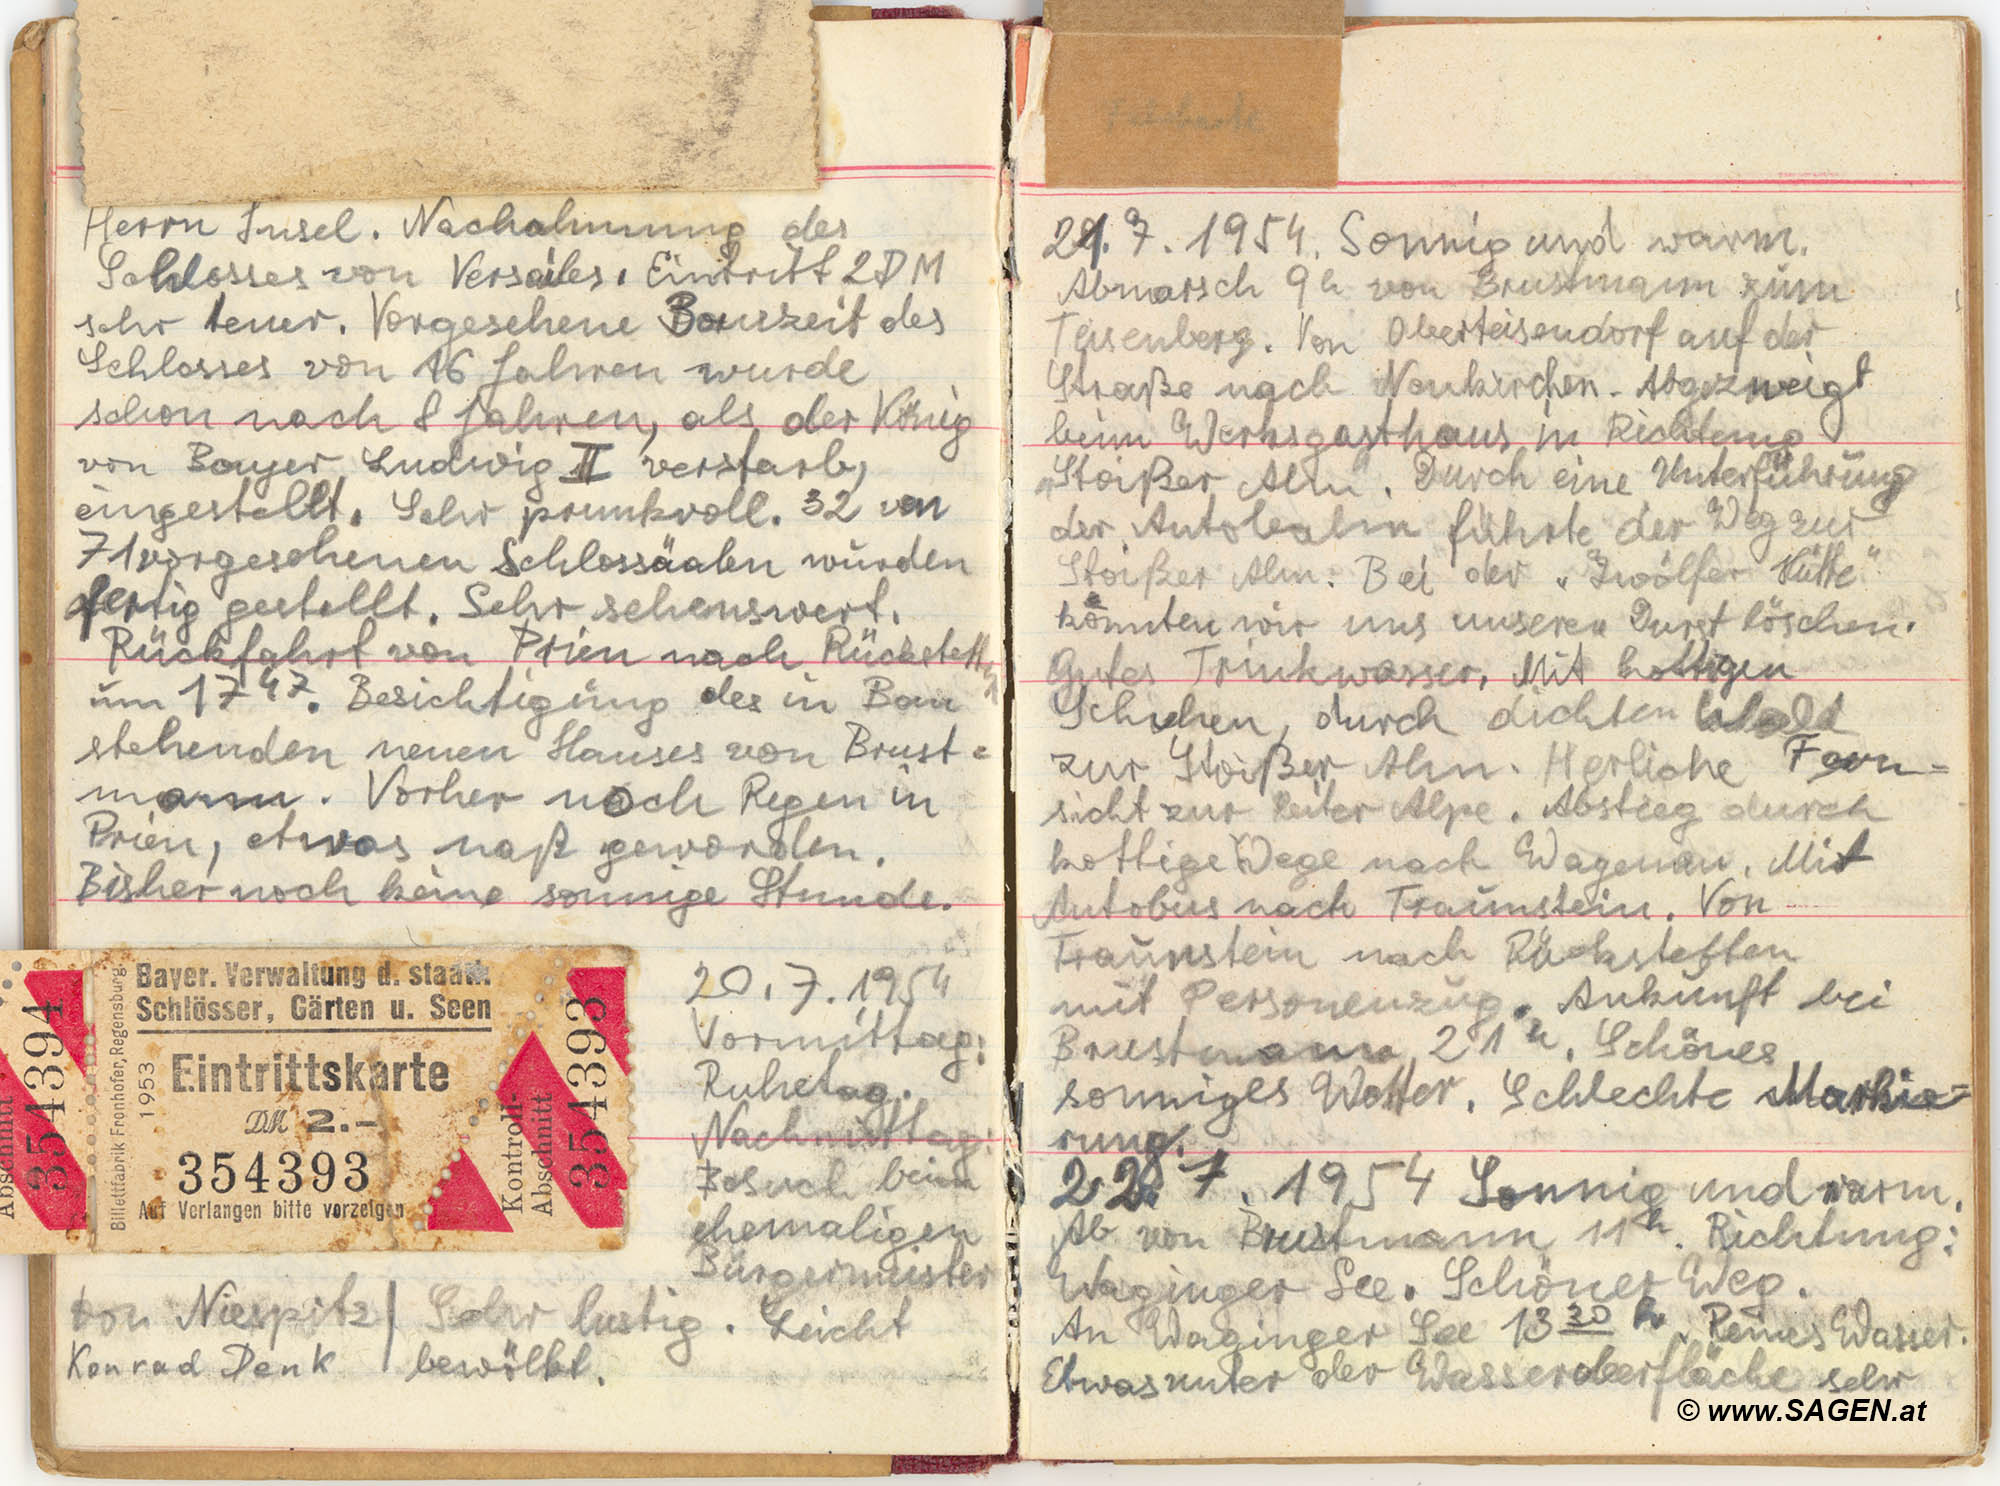 Herrn Insel. Nachahmung des
Schlosses von Versailes. Eintritt 2DM
sehr teuer. Vorgesehene Bauzeit des
Schlosses von 16 Jahren wurde
schon nach 8 Jahren, als der König
von Bayer Ludwig II verstarb,
eingestellt. Sehr prunkvoll. 32 von
71 vorgesehenen Schlossäalen wurden
fertig gestellt. Sehr sehenswert.
Rückfahrt von Prien nach Rückstetten
um 17 47. Besichtigung des in Bau
stehenden neuen Hauses von Brust=
mann. Vorher noch Regen in
Prien, etwas naß geworden.
Bisher noch keine sonnige Stunde.
Bayer. Verwaltung d. staatl.
Schlösser, Gärten u. Seen
Eintrittskarte
DM 2.-
354393
Auf Verlangen bitte vorzeigen
Billettfabrik Fronhofer, Regensburg.
1953
Kontroll-
Abschnitt
354393
Abschnitt
354394
20.7.1954
Vormittag:
Ruhetag.
Nachmittag:
Besuch beim
ehemaligen
Bürgermeister
von Niespitz
Konrad Denk
Sehr lustig. Leicht
bewölkt.
21.7.1954. Sonnig und warm.
Abmarsch 9h von Brustmann zum
Teisenberg. Von Oberteisendorf auf der
Straße nach Neukirchen. Abgezweigt
beim Werksgasthaus in Richtung
"Stoißer Alm". Durch eine Unterführung
der Autobahn führte der Weg zur
Stoißer Alm. Bei der "Zwölfer Hütte"
konnten wir uns unseren Durst löschen.
Gutes Trinkwasser. Mit kottigen
Schuhen, durch dichten Wald
zur Stoißer Alm. Herliche Fern=
sicht zur Reiter Alpe. Abstieg durch
kottige Wege nach Wagenau. Mit
Autobus nach Traunstein. Von
Traunstein nach Rückstetten
mit Personenzug. Ankunft bei
Brustmann 21h. Schönes
sonniges Wetter. Schlechte Markie=
rung.
22.7.1954 Sonnig und warm.
Ab von Brustmann 11h. Richtung:
Waginger See. Schöner Weg.
An Waginger See 13 30 h. Reines Wasser.
Etwas unter der Wasseroberfläche sehr
© www.SAGEN.at